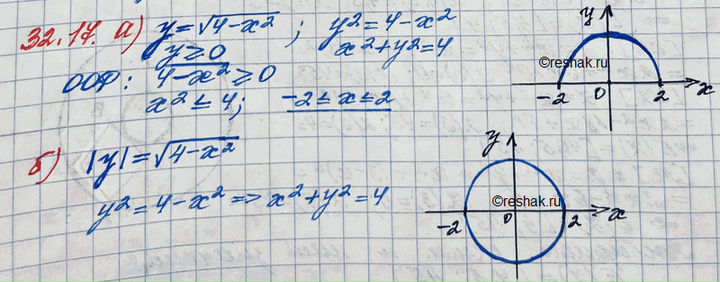 32.17. а) y = √(4-x²) ; y² = 4-x²
y ≥ 0 x² + y² = 4
ООФ: 4-x² ≥ 0
x² ≤ 4; -2 ≤ x ≤ 2
y
©reshak.ru
-2 0 2 x
б) |y| = √(4-x²)
y² = 4-x² => x² + y² = 4
y
©reshak.ru
-2 0 2 x